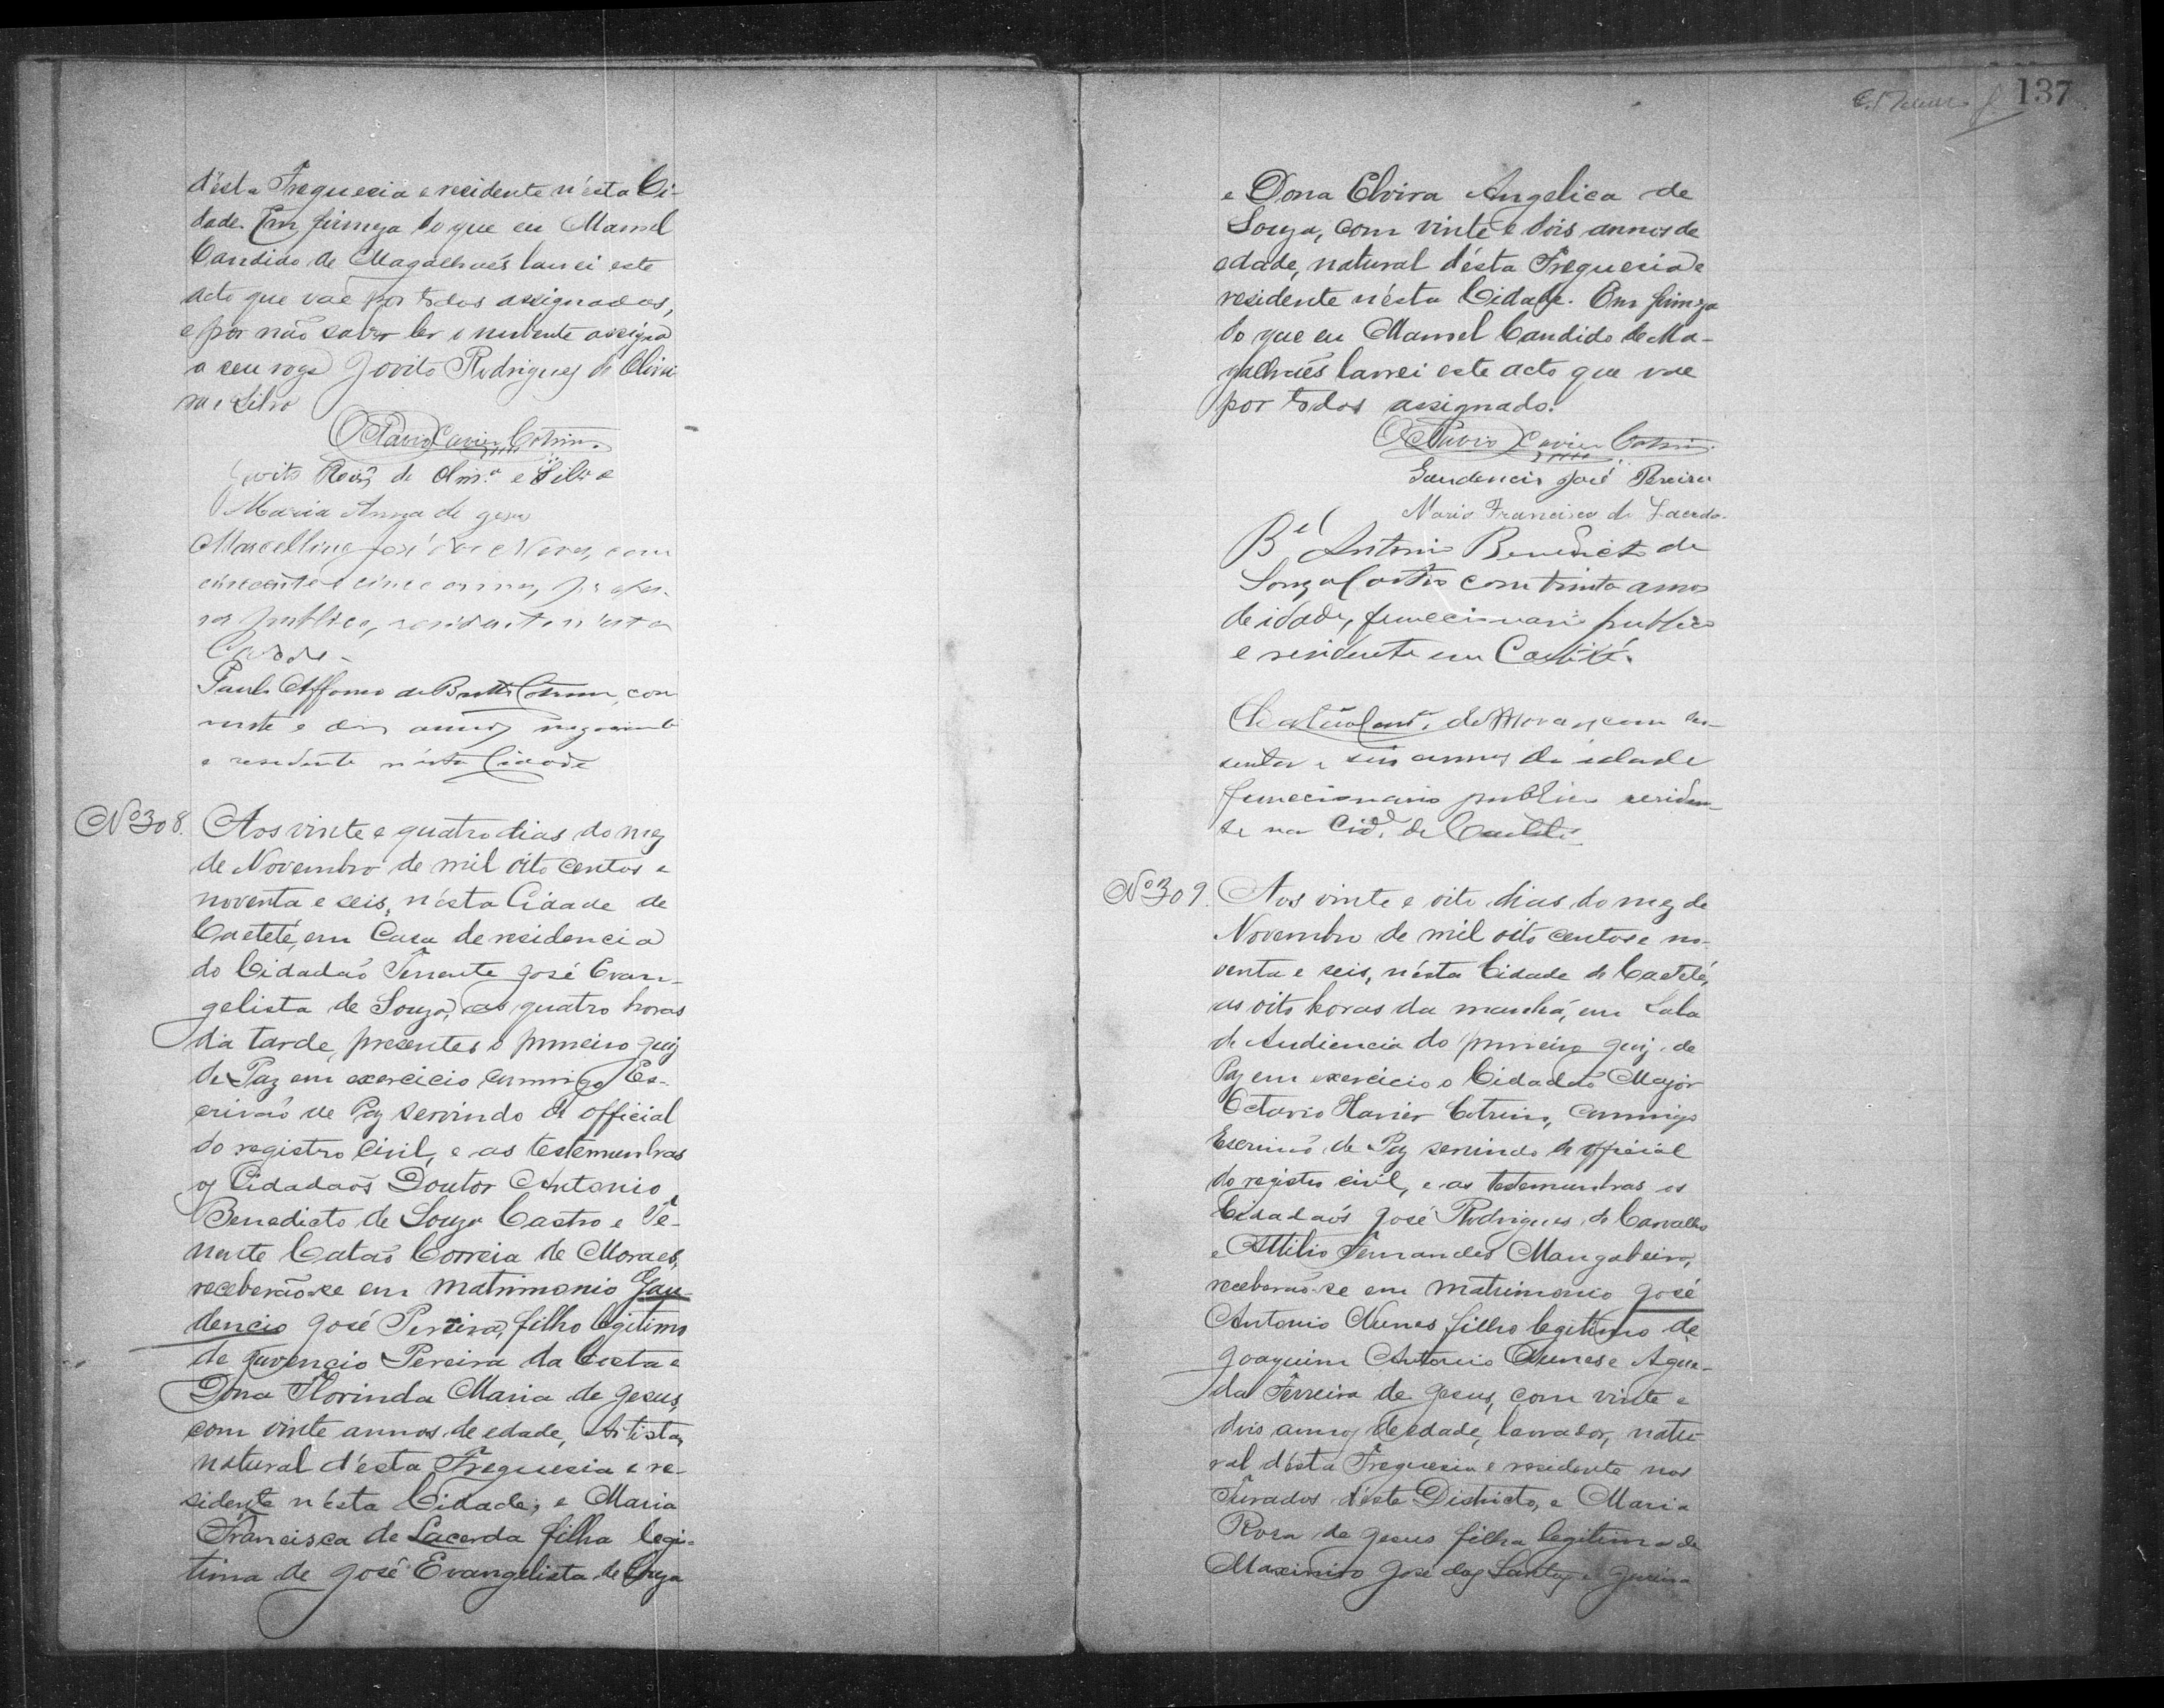 d'ésta Freguesia e residente n'ésta Ci-
dade. Em firmeza do que eu Manoel
Candido de Magalhaẽs lavrei este
acto que vae por todos assignados,
e por não saber ler o nubente assigna
a seu rogo Jovito Rodrigues de Olivei
ra e Silva
Octavio Xavier Cotrim.
Jovito Roiz de Olivrª e Silva
Maria Anna de Jesus
Marcellino José das Neves, com
cincoenta e cinco annos, profes-
sor publico, residente n'esta
Cidade.
Paulo Affonso de Britto Cotrim, com
vinte e dois annos negociante
e residente n'ésta Cidade
Nº 308. Aos vinte e quatro dias do mez
de Novembro de mil oito centos e
noventa e seis, n'ésta Cidade de
Caeteté, em Casa de residencia
do Cidadaõ Tenente José Evan-
gelista de Souza, as quatro horas
da tarde, presentes o primeiro juiz
de Paz em exercicio commigo Es-
crivaõ de Paz servindo de official
do registro Civil, e as testemunhas
os Cidadaõs Doutor Antonio
Benedicto de Souza Castro e Te-
nente Cataõ Correia de Moraes,
receberão-se em matrimonio Gau-
dencio José Pereira, filho legitimo
de Juvencio Pereira da Costa e
Dona Florinda Maria de Jesus,
com vinte annos de edade, Artista,
natural d'ésta Freguesia e re-
sidente n'ésta Cidade; e Maria
Francisca de Lacerda filha legi-
tima de José Evangelista de Souza
137
e Dona Elvira Angelica de
Souza, com vinte e dois annos de
edade, natural d'ésta Freguesia e
residente n'ésta Cidade. Em firmeza
do que eu Manoel Candido de Ma-
galhaẽs lavrei este acto que vae
por todos assignado.
Octavio Xavier Cotrim.
Gaudencio José Pereira
Maria Francisca de Lacerda.
Bel Antonio Benedicto de
Souza Castro com trinta annos
de idade, funccionario publico
e residente em Caeteté.
Catão Corrª de Moraes, com ses-
senta e seis annos de idade
funccionario publico residen-
te na Cidᵉ de Caeteté
Nº 309. Aos vinte e oito dias do mez de
Novembro de mil oito centos e no-
venta e seis, n'ésta Cidade de Caeteté,
as oito horas da manhã, em Sala
de Audiencia do primeiro juiz de
Paz em exercicio o Cidadaõ Major
Octavio Xavier Cotrim, commigo
Escrivaõ de Paz servindo de official
do registro civil, e as testemunhas os
Cidadaõs José Rodrigues de Carvalho
e Attilio Fernandes Mangabeira,
receberão-se em matrimonio José
Antonio Nunes filho legitimo de
Joaquim Antonio Nunes e Ague-
da Ferreira de Jesus, com vinte e
dois annos de edade, lavrador, natu-
ral d'ésta Freguesia e residente nos
Furados d'éste Districto, e Maria
Rosa de Jesus filha legitima de
Maximino José dos Santos e